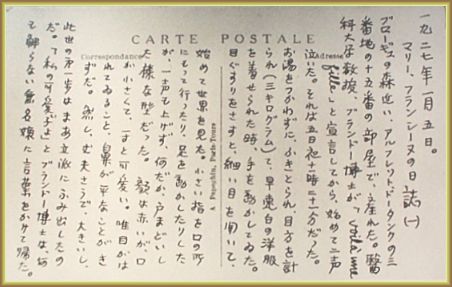 一九二七年一月五日。
マリー、フランシーヌの日誌(一)
ブローギュの森近い、アルフレット、ドータンクの三
番地の十五番の部屋で、産れた。醫
科大学教授、ブランドー博士が "Voilà une
fille" と宣言してから、始めて二声
泣いた。それは五日夜十一時十一分だった。
お湯をつかわずに、ふきとられ、目方を計
られ(三キログラム)て、早速白の洋服
を着せられた時、手をあかしてゐた。
目ぐすりをさすと、細い目を開いて、
始めて世界を見た。小さい指を口の所
にもって行ったり、足を動かしたりした
が、一声も上げず、何だか、うまどいし
た様な型だった。顔は赤いが、口
が小さくて、一寸と可愛い。唯目がは
れてゐること、鼻が平なことがき
ずだ。然し、丈夫さうで、大きいし、
此世の第一歩はまあ立派にふみ出したの
だ。"私の可愛い子" とブランドー博士は、
で帰らない無名嬢に言葉をかけて帰た。
CARTE POSTALE
Correspondance
Adresse
A. Papeghin, Paris-Tours